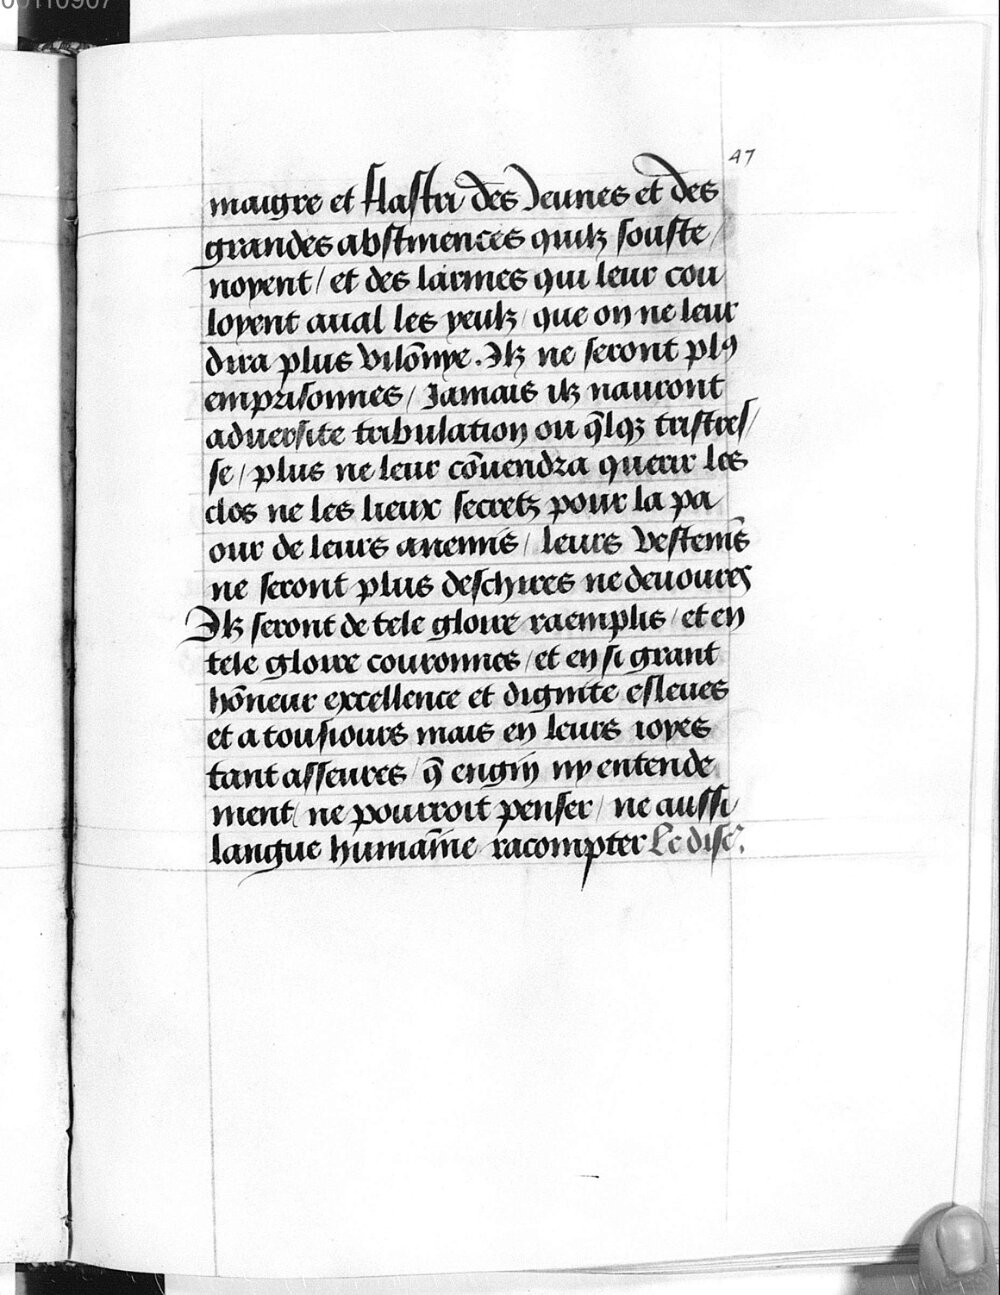 00110907
47
maigre et flastri des Jeunes et des
grandes abstinences quilz souste/
noyent / et des larmes qui leur cou
loyent aual les yeulz / que on ne leur
dira plus vilõnye. Ilz ne seront plꝰ
emprisonnes / Jamais ilz nauront
aduersite tribulation ou q̃lqz tristres/
se / plus ne leur cõuendra querir les
clos ne les lieux secretz pour la pa
our de leurs anemis / leurs vestemẽs
ne seront plus deschires ne deuoures
Ilz seront de tele gloire raemplis / et en
tele gloire couronnes / et en si grant
hõneur excellence et dignite esleues
et a tousiours mais en leurs ioyes
tant asseures / q̃ engin ny entende
ment / ne pourroit penser / ne aussi
langue humaine racompter Le disc.